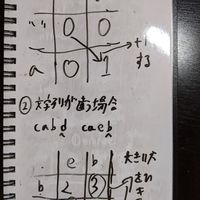 "" 0 0
+1
する
a 0 1
② 文字列が違う場合
cabd caeb
e b
b 2 ③